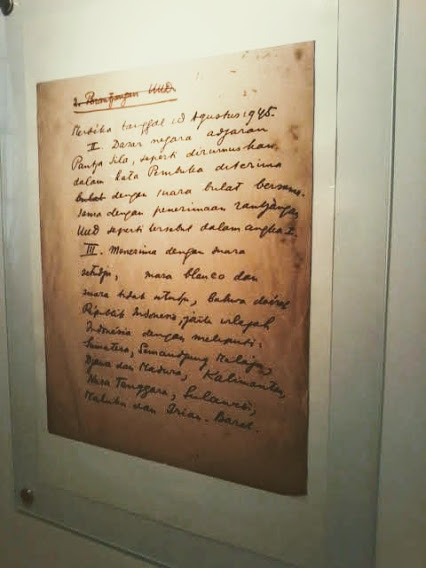 UUD.
Merdika tanggal 18 Agustus 1945.
II. Dasar negara adjaran
Pantja Sila, seperti dirumuskan
dalam Kata Pembuka diterima
bulat dengan suara bulat bersama-
sama dengan penerimaan rantjangan
UUD seperti tersebut dalam angka I.
III. Menerima dengan suara
setudju, suara blanco dan
suara tidak setudju, bahwa daerah
Republik Indonesia, jaitu wilajah
Indonesia dengan meliputi:
Sumatera, Semandjung Melaju,
Djawa dan Madura, Kalimantan,
Nusa Tenggara, Sulawesi,
Maluku dan Irian-Barat.